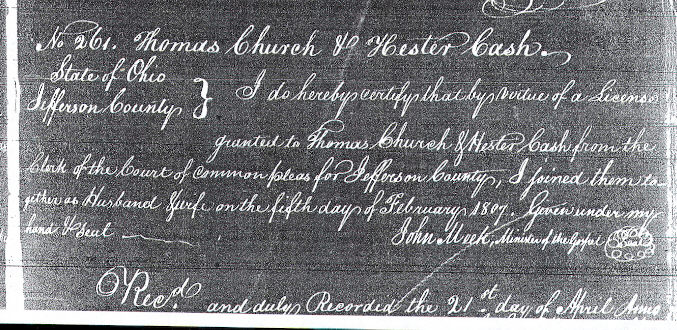 No 261. Thomas Church & Hester Cash.
State of Ohio
Jefferson County } I do hereby certify that by virtue of a License
granted to Thomas Church & Hester Cash from the
Clerk of the Court of Common pleas for Jefferson County, I joined them to-
gether as Husband & wife on the fifth day of February 1807. Given under my
hand & seal John Meek, Minister of the Gospel Seal
Rec.d and duly Recorded the 21st day of April Anno